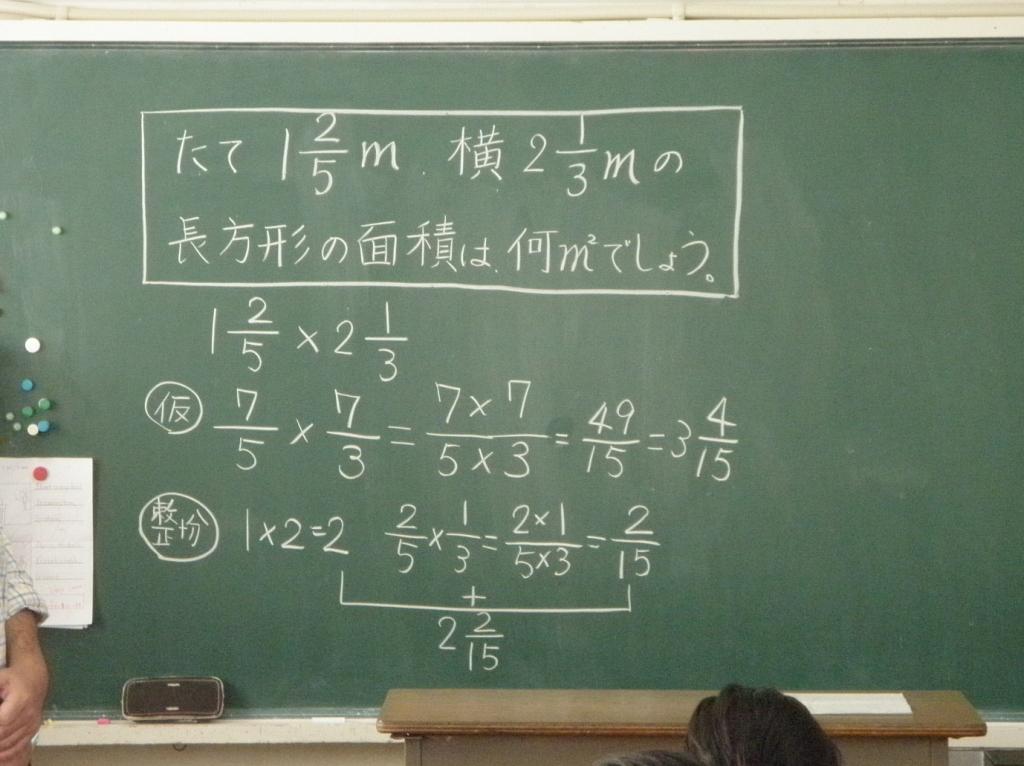 たて 1 2/5 m . 横 2 1/3 m の
長方形の面積は 何m²でしょう。
1 2/5 × 2 1/3
仮 7/5 × 7/3 = 7×7/5×3 = 49/15 = 3 4/15
整分 1×2=2 2/5 × 1/3 = 2×1/5×3 = 2/15
+
2 2/15